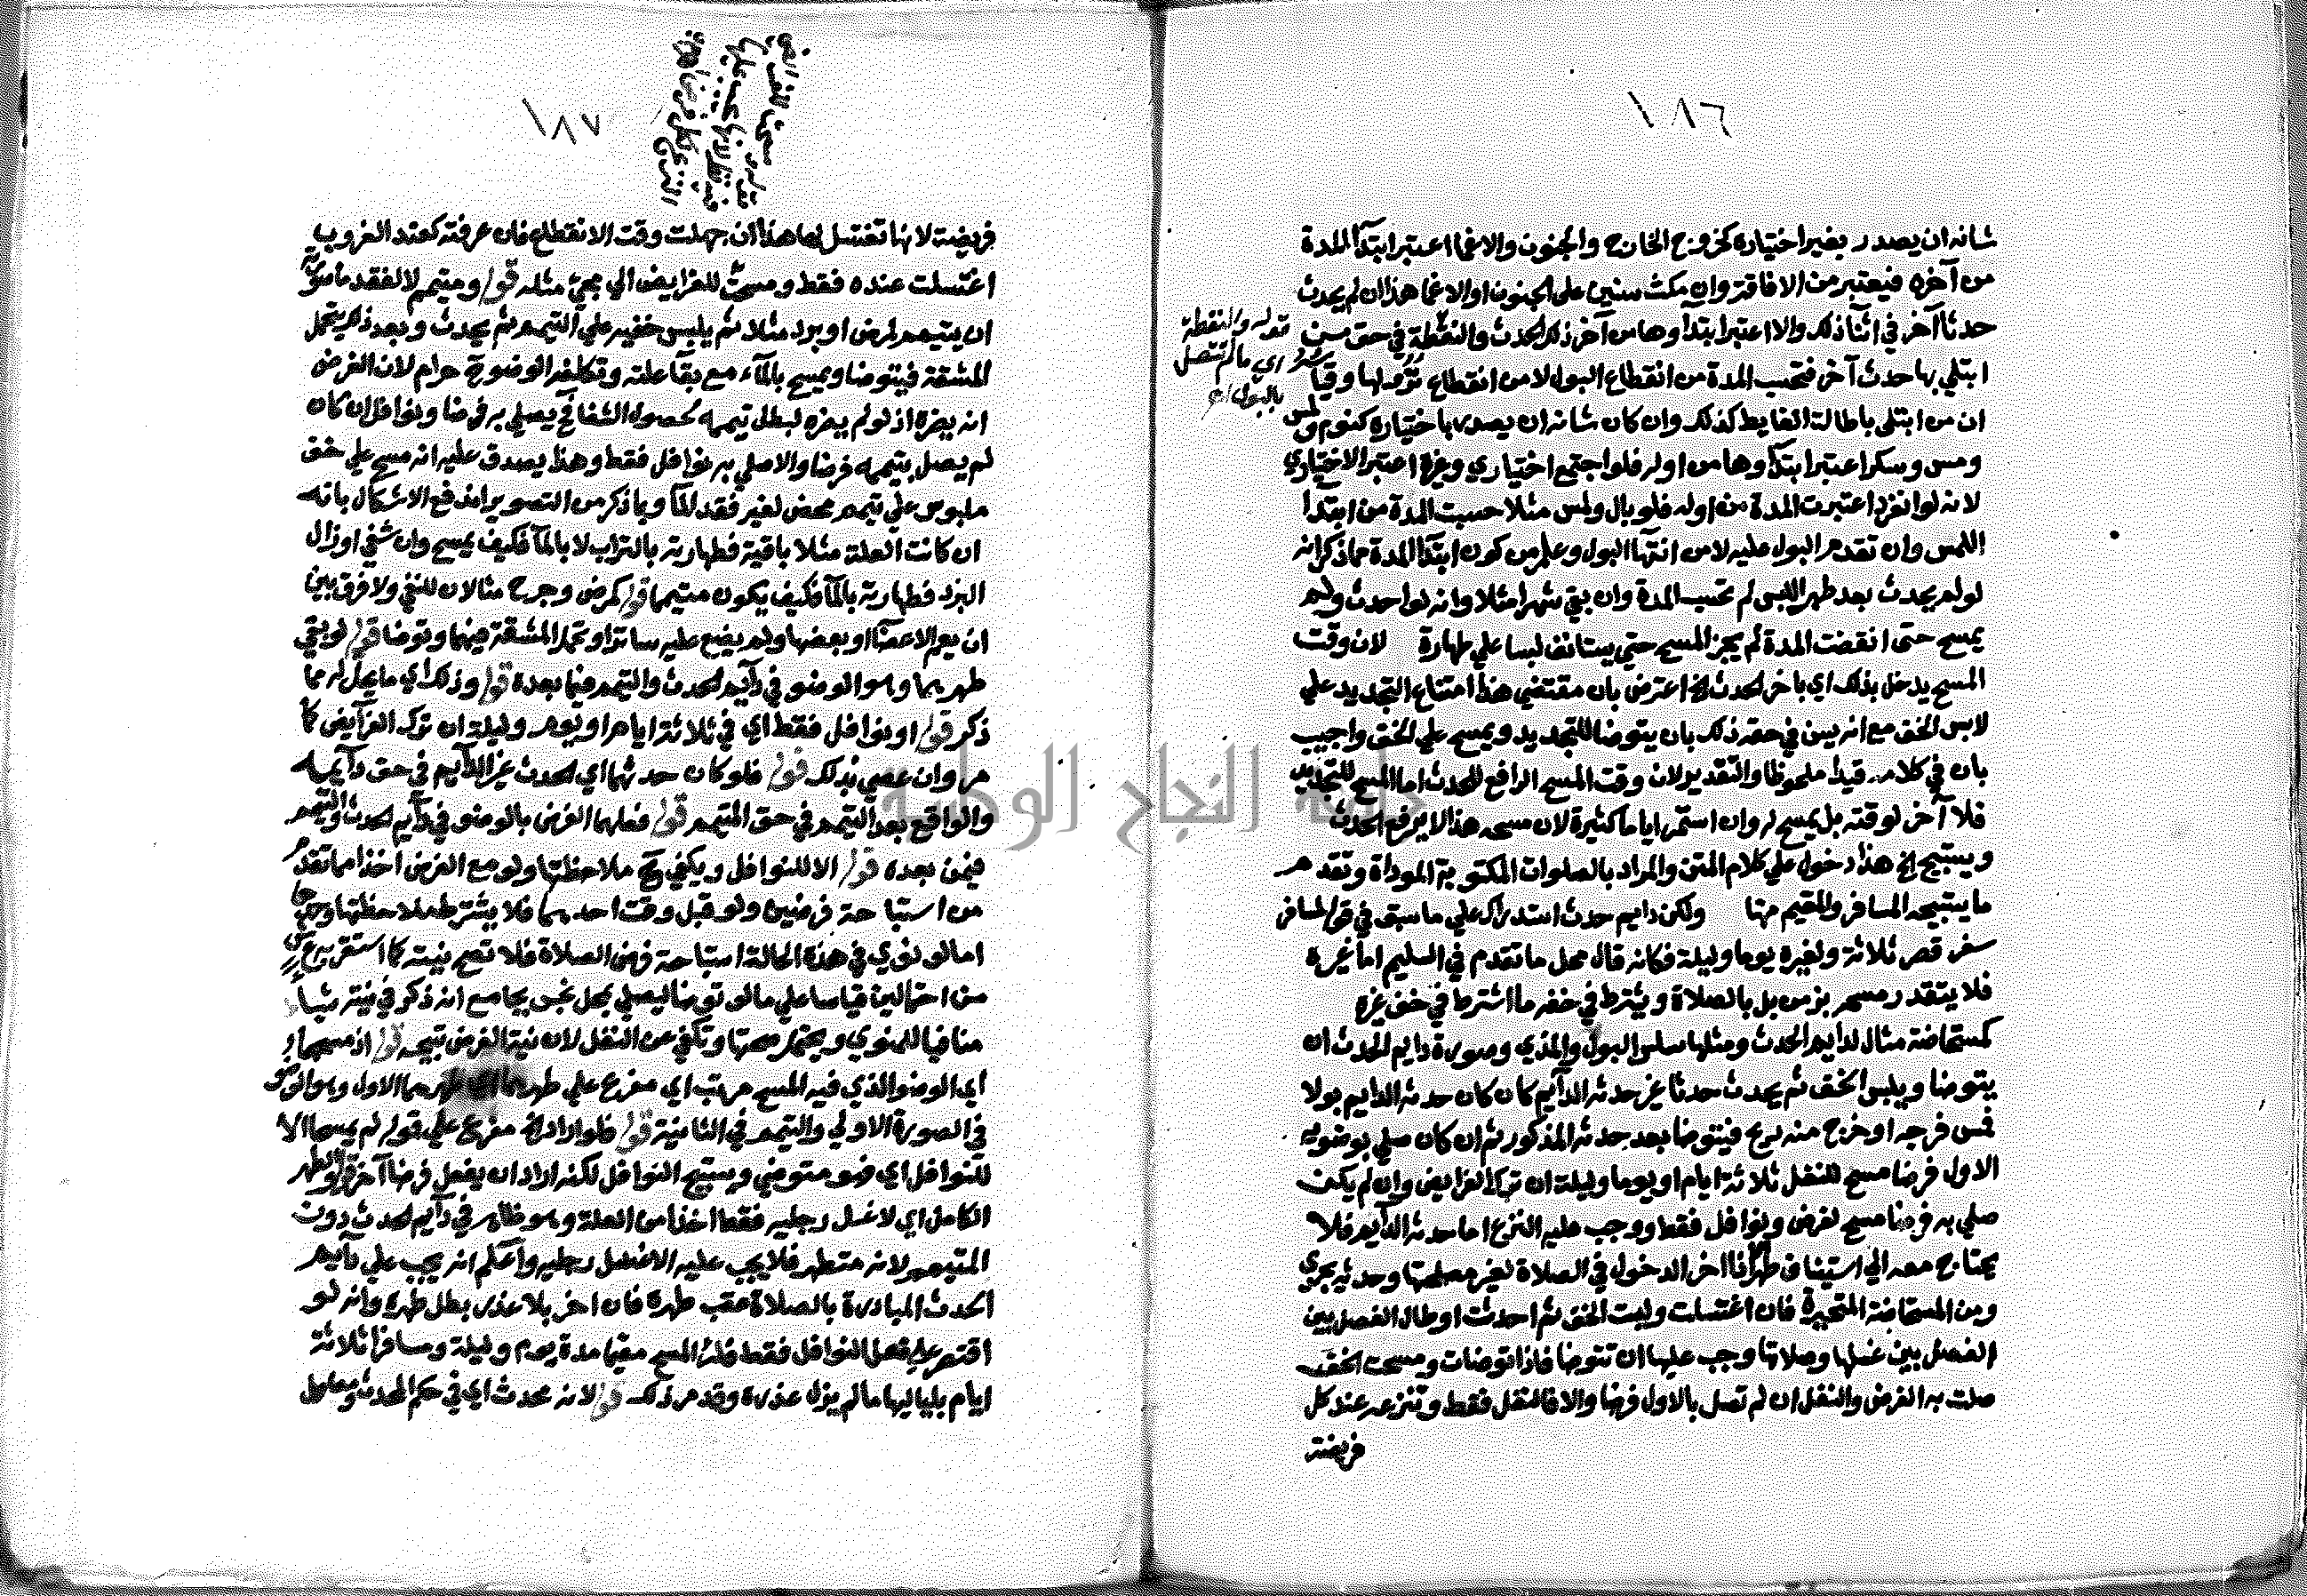 ١٨٦
شانه ان يصدر بغير اختياره كخروج الخارج والجنون والاغما اعتبر ابتدآ المدة
من آخره فيعتبر من الافاقة وان مكث سنين علي الجنون او الاغما هذا ان لم يحدث
حدثا آخر في اثنا ذلك والا اعتبر ابتدآوها من آخر ذلك الحدث والنقطة في حق من
ابتلي بها حدث آخر فتحسب المدة من انقطاع البول لا من انقطاع نزولها وقيا
ان من ابتلي باطالة الغايط كذلك وان كان شانه ان يصدر باختياره كنوم ولمس
ومس وسكر اعتبر ابتدآوها من اوله فلو اجتمع اختياري وغيره اعتبر الاختياري
لانه لو انفرد اعتبرت المدة من اوله فلو بال ولمس مثلا حسبت المدة من ابتدآ
اللمس وان تقدم البول عليه لا من انتهآ البول وعلم من كون ابتدآ المدة مما ذكر انه
لو لم يحدث بعد طهر اللبس لم تحسب المدة وان بقي شهرا مثلا وانه لو احدث ولم
يمسح حتى انقضت المدة لم يجز المسح حتي يستانف لبسا علي طهارة لان وقت
المسح يدخل بذلك اي باخر الحدث الخ اعترض بان مقتضي هذا امتناع التجديد علي
لابس الخف مع انه يسن في حقه ذلك بان يتوضا للتجديد ويمسح علي الخف واجيب
بان في كلامه قيدا ملحوظا والتقدير لان وقت المسح الرافع للحدث اما المسح للتجديد
فلا آخر لوقته بل يمسح له وان استمر اياما كثيرة لان مسحه هذا لا يرفع الحدث
ويستبيح الخ هذا دخول علي كلام المتن والمراد بالصلوات المكتوبة الموداة وتقدم
ما يستبيحه المسافر والمقيم منها ولكن دايم حدث استدراك علي ما سبق في قوله لمسافر
سفر قصر ثلاثة ولغيره يوما وليلة فكانه قال محل ما تقدم في السليم اما غيره
فلا يتقدر مسحه بزمن بل بالصلاة ويشترط في خفه ما اشترط في خف غيره
كمستحاضة مثال لدايم الحدث ومثلها سلس البول والمذي وصورة دايم الحدث ان
يتوضا ويلبس الخف ثم يحدث حدثا غير حدثه الدآيم كان كان حدثه الدايم بولا
فمس فرجه او خرج منه ريح فيتوضا بعد حدثه المذكور ثم ان كان صلي بوضويه
الاول فرضا مسح للنفل ثلاثة ايام او يوما وليلة ان ترك الفرايض وان لم يكن
صلي به فرضا مسح لفرض ونوافل فقط ووجب عليه النزع اما حدثه الدآيم فلا
يحتاج معه الي استيناف طهر الا اذا اخر الدخول في الصلاة لغير مصلحتها وحدثه يجري
ومن المستحاضة المتحيرة فان اغتسلت ولبست الخف ثم احدثت او طال الفصل بين
الفصل بين غسلها وصلاتها وجب عليها ان تتوضا فاذا توضات ومسحت الخف
صلت به الفرض والنفل ان لم تصل بالاول فرضا والا فالنفل فقط وتنزعه عند كل
فريضة
قوله والنقطة
اي مالم تتصل
بالبول اهـ
١٨٧
فريضة لانها تغتسل لها هذا ان جهلت وقت الانقطاع فان عرفته كعند الغروب
اغتسلت عنده فقط ومسحت للفرايض الي مجيء مثله قوله ومتيمم لا لفقد ما صورته
ان يتيمم لمرض او برد مثلا ثم يلبس خفيه علي التيمم ثم يحدث وبعد ذلك يتحمل
المشقة فيتوضا ويمسح بالمآء مع بقآ علته وتكلفه الوضوء ح حرام لان الفرض
انه يضره اذ لو لم يضره لبطل تيممه لحصول الشفا ح فيصلي به فرضا ونوافل ان كان
لم يصل بتيممه فرضا والا صلي به نوافل فقط وهذا يصدق عليه انه مسح علي خف
ملبوس علي تيمم محض لغير فقد المآ وبما ذكر من التصوير اندفع الاشكال بانه
ان كانت العلة مثلا باقية فطهارته بالتراب لا بالمآ فكيف يمسح وان شفي او زال
البرد فطهارته بالمآ فكيف يكون متيمما قوله كمرض وجرح مثالان للنفي ولا فرق بين
ان يعم الاعضآ او بعضها ولم يضع عليه ساترا وتحمل المشقة فيهما وتوضا قوله لو بقي
طهرهما وهو الوضو في دآيم الحدث والتيمم فيما بعده قوله وذلك اي ما يحل له مما
ذكر قوله او نوافل فقط اي في ثلاثة ايام او يوم وليلة ان ترك الفرآيض كما
مر وان عصي بذلك قوله فلو كان حدثهما اي الحدث غير الدآيم في حق دآيمه
والواقع بعد التيمم في حق المتيمم قوله فعلهما الفرض بالوضو في دآيم الحدث والتيمم
فيمن بعده قوله الا للنوافل ويكفي ح ملاحظتها ولو مع الفرض اخذا مما تقدم
من استباحة فرضين ولو قبل وقت احدهما فلا يشترط ملاحظتها وحدها
اما لو نوي في هذه الحالة استباحة فرض الصلاة فلا تصح نيته كما استقر به
من احتمالين قياسا علي ما لو توضا ليصلي بمحل نجس بجامع انه ذكر في نيته شيا
منافيا للمنوي ويحتمل صحتها وتكفي عن النفل لان نية الفرض تبيحه قوله اذ مسحهما
اي الوضو الذي فيه المسح مرتب اي مفرع علي طهرهما اي طهرهما الاول وهو الوضو
في الصورة الاولي والتيمم في الثانية قوله فلو اراد الخ مفرع علي قوله لم يمسحا الا
للنوافل اي فهو متوضي ويستبيح النوافل لكنه اراد ان يفعل فرضا آخر قوله الطهر
الكامل اي لا غسل رجليه فقط اخذا من العلة وهو ظاهر في دآيم الحدث دون
المتيمم لانه متطهر فلا يجب عليه الا غسل رجليه واعلم انه يجب علي دآيم
الحدث المبادرة بالصلاة عقب طهره فان اخر بلا عذر بطل طهره وانه لو
اقتصر علي فعل النوافل فقط فله المسح مقيما مدة يوم وليلة ومسافرا ثلاثة
ايام بلياليها ما لم يزل عذره وقد مر ذلك قوله لانه محدث اي في حكم المحدث